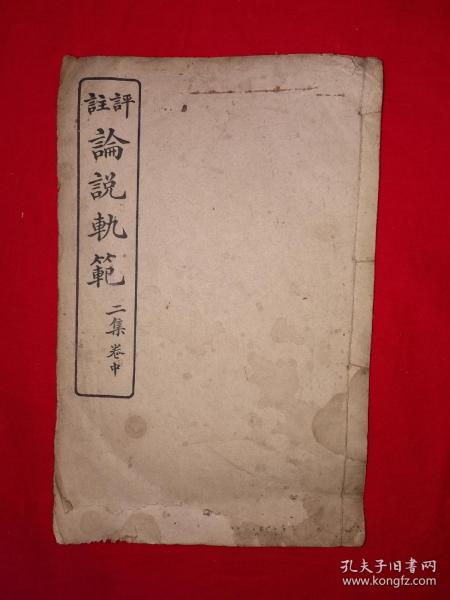 評註
論說軌範
二集卷中
孔夫子旧书网
www.kongfz.com